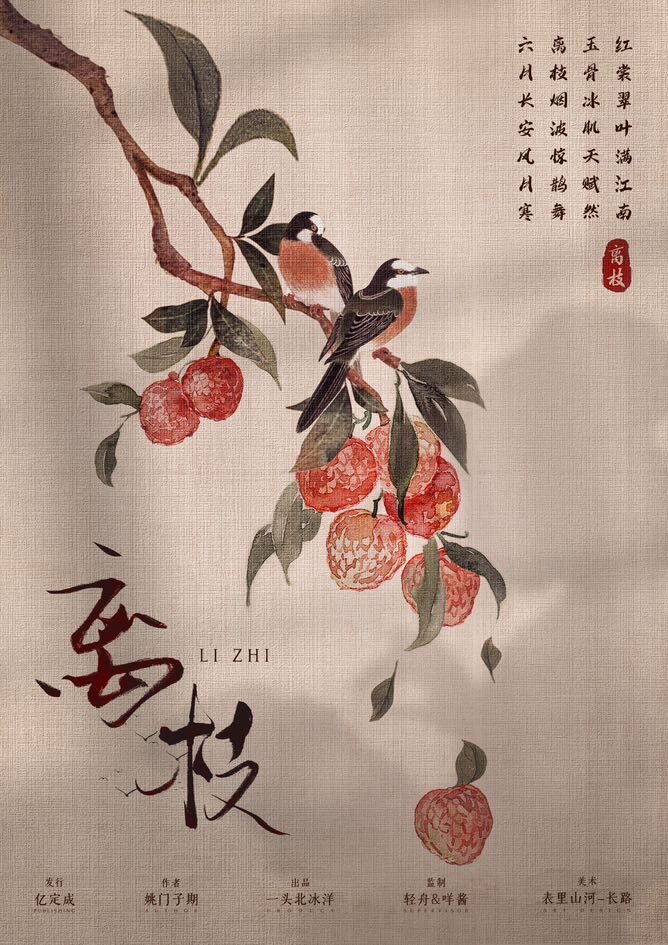 红裳翠叶满江南
玉骨冰肌天赋然
离枝烟波惊鹊舞
六月长安风月寒
离枝
离枝
LI ZHI
发行
亿定成
PUBLISHING
作者
姚门子期
AUTHOR
出品
一头北冰洋
PRODUCT
监制
轻舟&咩酱
SUPERVISOR
美术
表里山河-长路
ART DESIGN